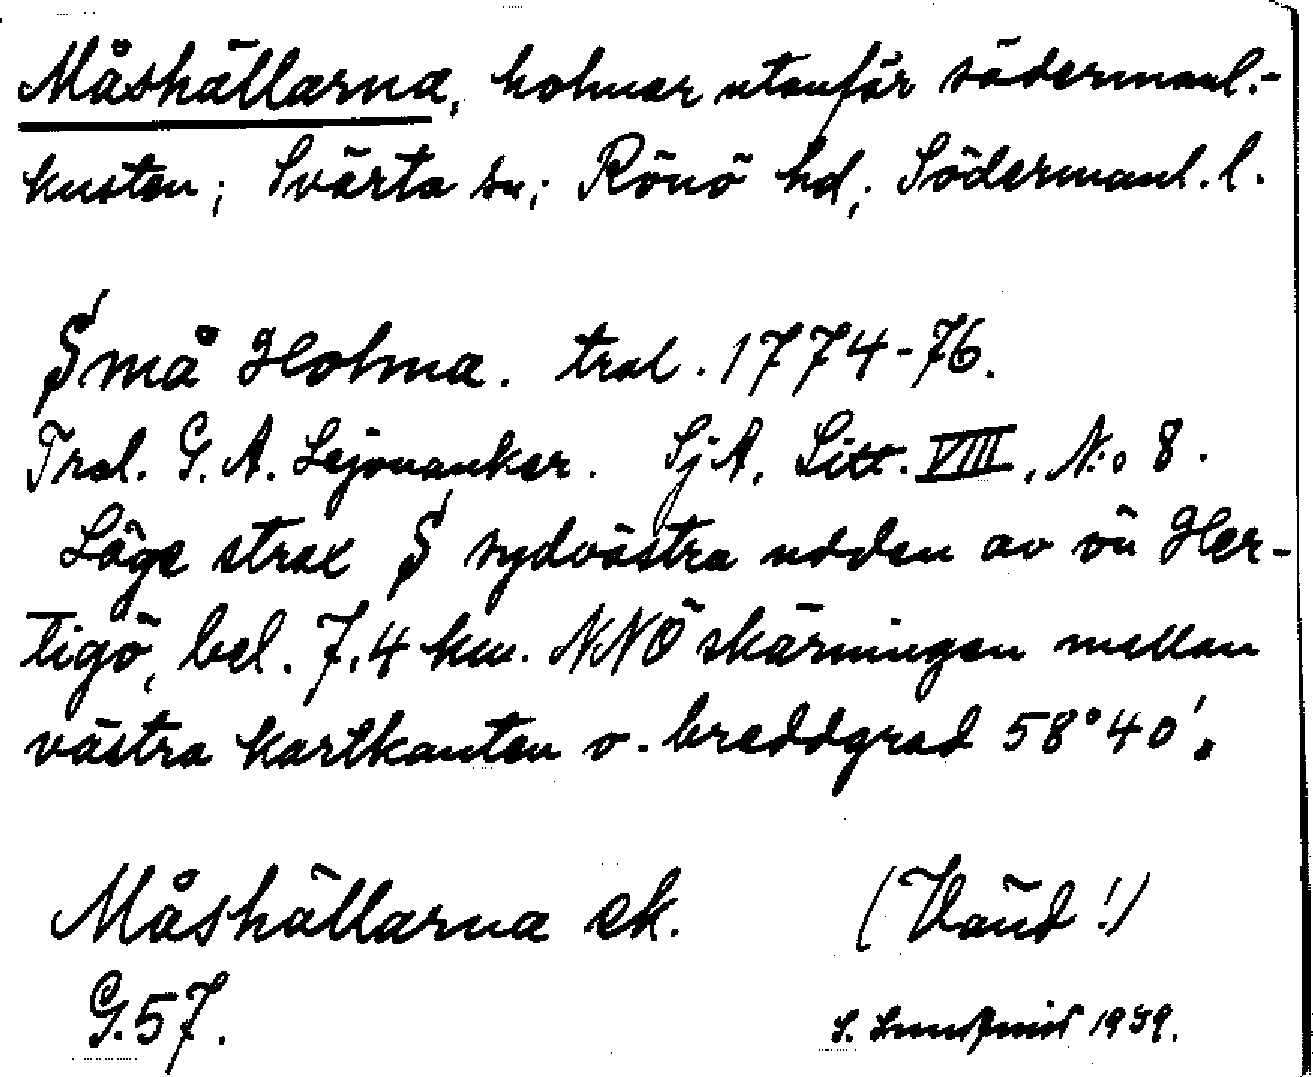 Måshällarna, holmar utanför södermanl.-
kusten; Svärta sn; Rönö hd; Södermanl. l.
Små Holma. tral. 1774-76.
Tral. G. A. Lejonanker. SjA. Litt. VIII, N:o 8.
Läge strax S sydvästra udden av ön Her-
tigö, bel. 7,4 km. NNÖ skärningen mellan
västra kartkanten o. breddgrad 58°40'.
Måshällarna ek. (Vänd!)
G.57.
S. 1939.